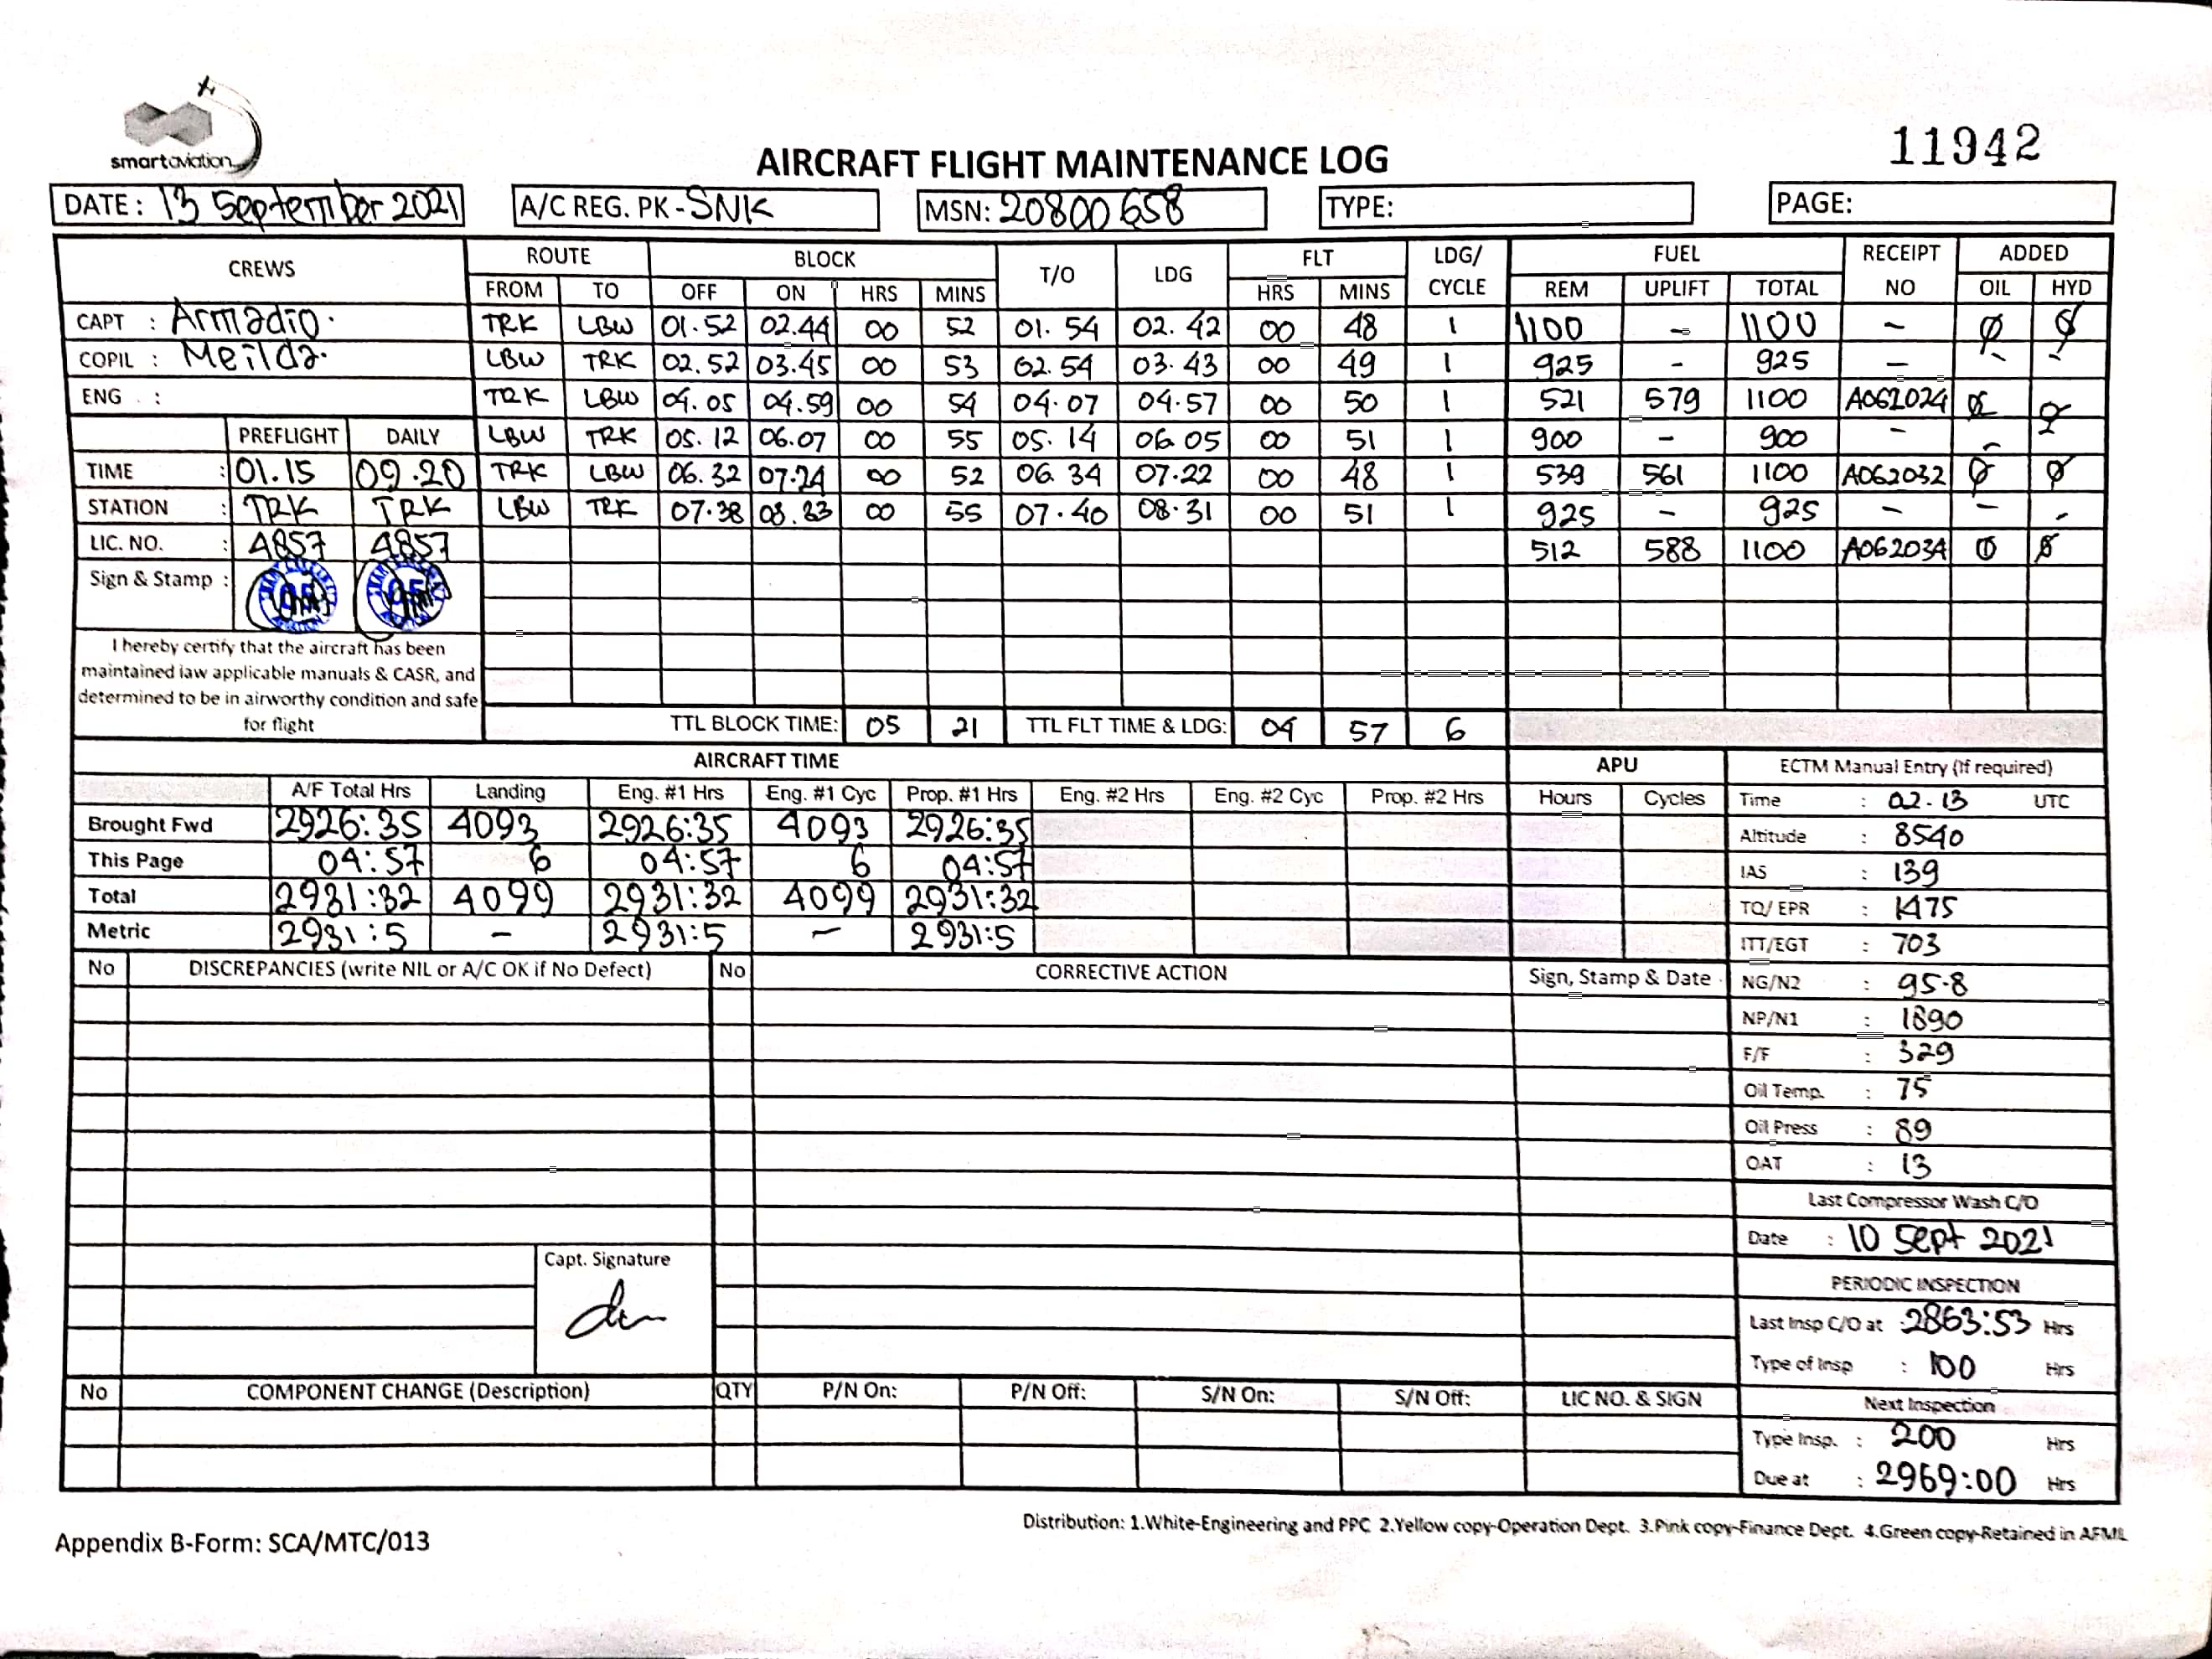 smartaviation
11942
AIRCRAFT FLIGHT MAINTENANCE LOG
DATE: 13 September 2021 A/C REG. PK-SNK MSN: 20800658 TYPE: PAGE:
CREWS ROUTE BLOCK T/O LDG FLT LDG/ CYCLE FUEL RECEIPT NO ADDED
FROM TO OFF ON HRS MINS HRS MINS REM UPLIFT TOTAL OIL HYD
CAPT : Armadio. TRK LBW 01.52 02.44 00 52 01.54 02.42 00 48 1 1100 - 1100 - Ø Ø
COPIL : Meilda. LBW TRK 02.52 03.45 00 53 02.54 03.43 00 49 1 925 - 925 - - -
ENG : TRK LBW 04.05 04.59 00 54 04.07 04.57 00 50 1 521 579 1100 A062024 Ø Ø
PREFLIGHT DAILY LBW TRK 05.12 06.07 00 55 05.14 06.05 00 51 1 900 - 900 - - -
TIME : 01.15 09.20 TRK LBW 06.32 07.24 00 52 06.34 07.22 00 48 1 539 561 1100 A062032 Ø Ø
STATION : TRK TRK LBW TRK 07.38 08.33 00 55 07.40 08.31 00 51 1 925 - 925 - - -
LIC. NO. : 4857 4857 512 588 1100 A062034 Ø Ø
Sign & Stamp :
I hereby certify that the aircraft has been
maintained iaw applicable manuals & CASR, and
determined to be in airworthy condition and safe
for flight
TTL BLOCK TIME: 05 21 TTL FLT TIME & LDG: 04 57 6
AIRCRAFT TIME APU ECTM Manual Entry (If required)
A/F Total Hrs Landing Eng. #1 Hrs Eng. #1 Cyc Prop. #1 Hrs Eng. #2 Hrs Eng. #2 Cyc Prop. #2 Hrs Hours Cycles Time : 02.13 UTC
Brought Fwd 2926:35 4093 2926:35 4093 2926:35 Altitude : 8540
This Page 04:57 6 04:57 6 04:57 IAS : 139
Total 2931:32 4099 2931:32 4099 2931:32 TQ/ EPR : 1475
Metric 2931:5 - 2931:5 - 2931:5 ITT/EGT : 703
No DISCREPANCIES (write NIL or A/C OK if No Defect) No CORRECTIVE ACTION Sign, Stamp & Date NG/N2 : 95.8
NP/N1 : 1890
F/F : 329
Oil Temp. : 75
Oil Press : 89
OAT : 13
Last Compressor Wash C/O
Date : 10 Sept 2021
Capt. Signature
PERIODIC INSPECTION
Last Insp C/O at : 2863:53 Hrs
Type of Insp : 100 Hrs
No COMPONENT CHANGE (Description) QTY P/N On: P/N Off: S/N On: S/N Off: LIC NO. & SIGN Next Inspection
Type Insp. : 200 Hrs
Due at : 2969:00 Hrs
Distribution: 1.White-Engineering and PPC 2.Yellow copy-Operation Dept. 3.Pink copy-Finance Dept. 4.Green copy-Retained in AFML
Appendix B-Form: SCA/MTC/013